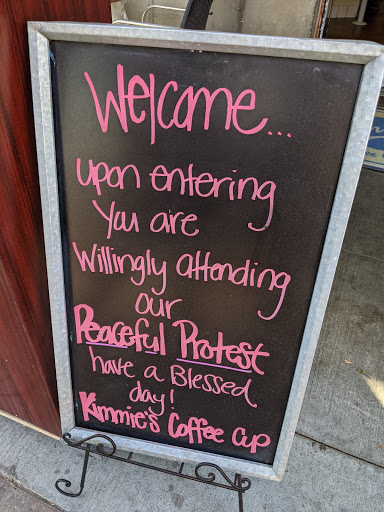 Welcome...
upon entering
You are
Willingly attending
our
Peaceful Protest
have a Blessed
day!
Kimmie's Coffee Cup